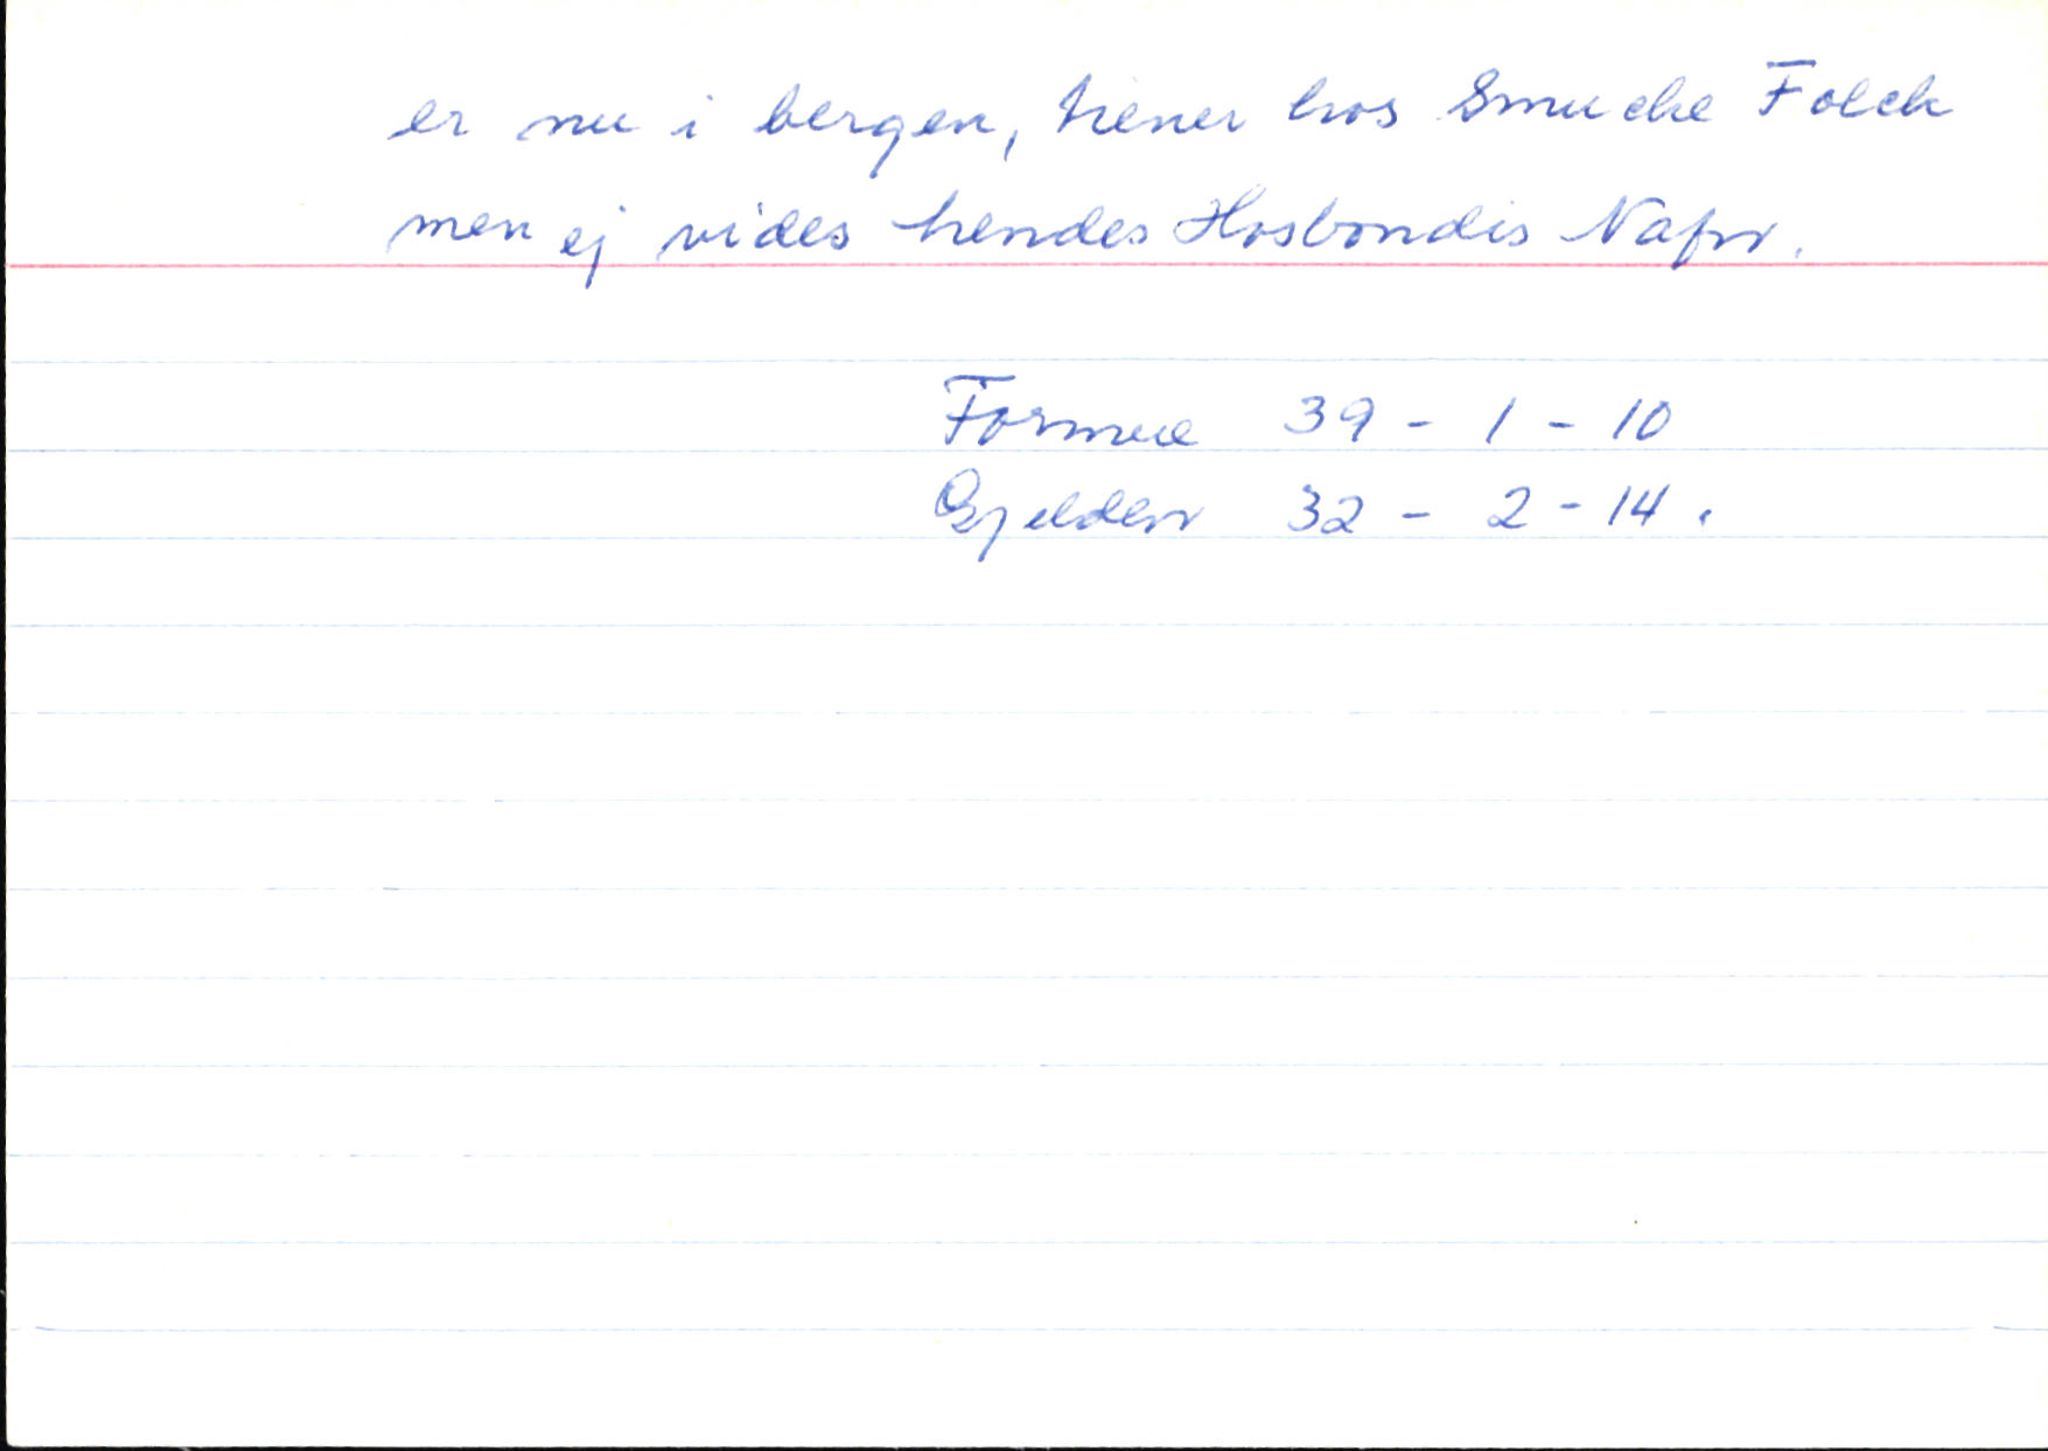 er nu i bergen, tiener hos Smucke Folck
men ej vides hendes Hosbondis Nafn.
Formue 39 - 1 - 10
Gjelden 32 - 2 - 14.